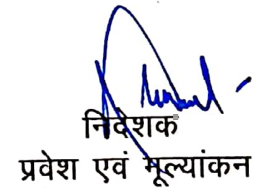 निदेशक
प्रवेश एवं मूल्यांकन